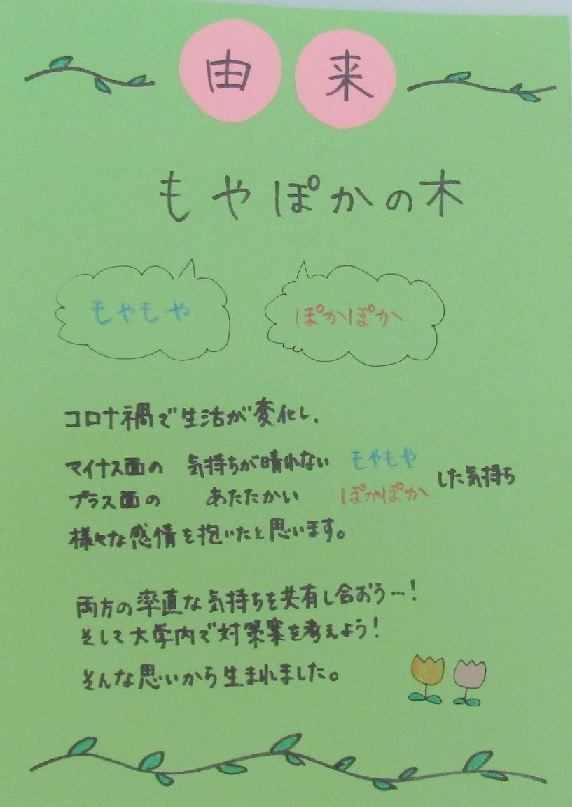 由来
もやぽかの木
もやもや ぽかぽか
コロナ禍で生活が変化し、
マイナス面の 気持ちが晴れない もやもや
プラス面の あたたかい ぽかぽか した気持ち
様々な感情を抱いたと思います。
両方の率直な気持ちを共有し合おう…!
そして大学内で対策案を考えよう!
そんな思いから生まれました。